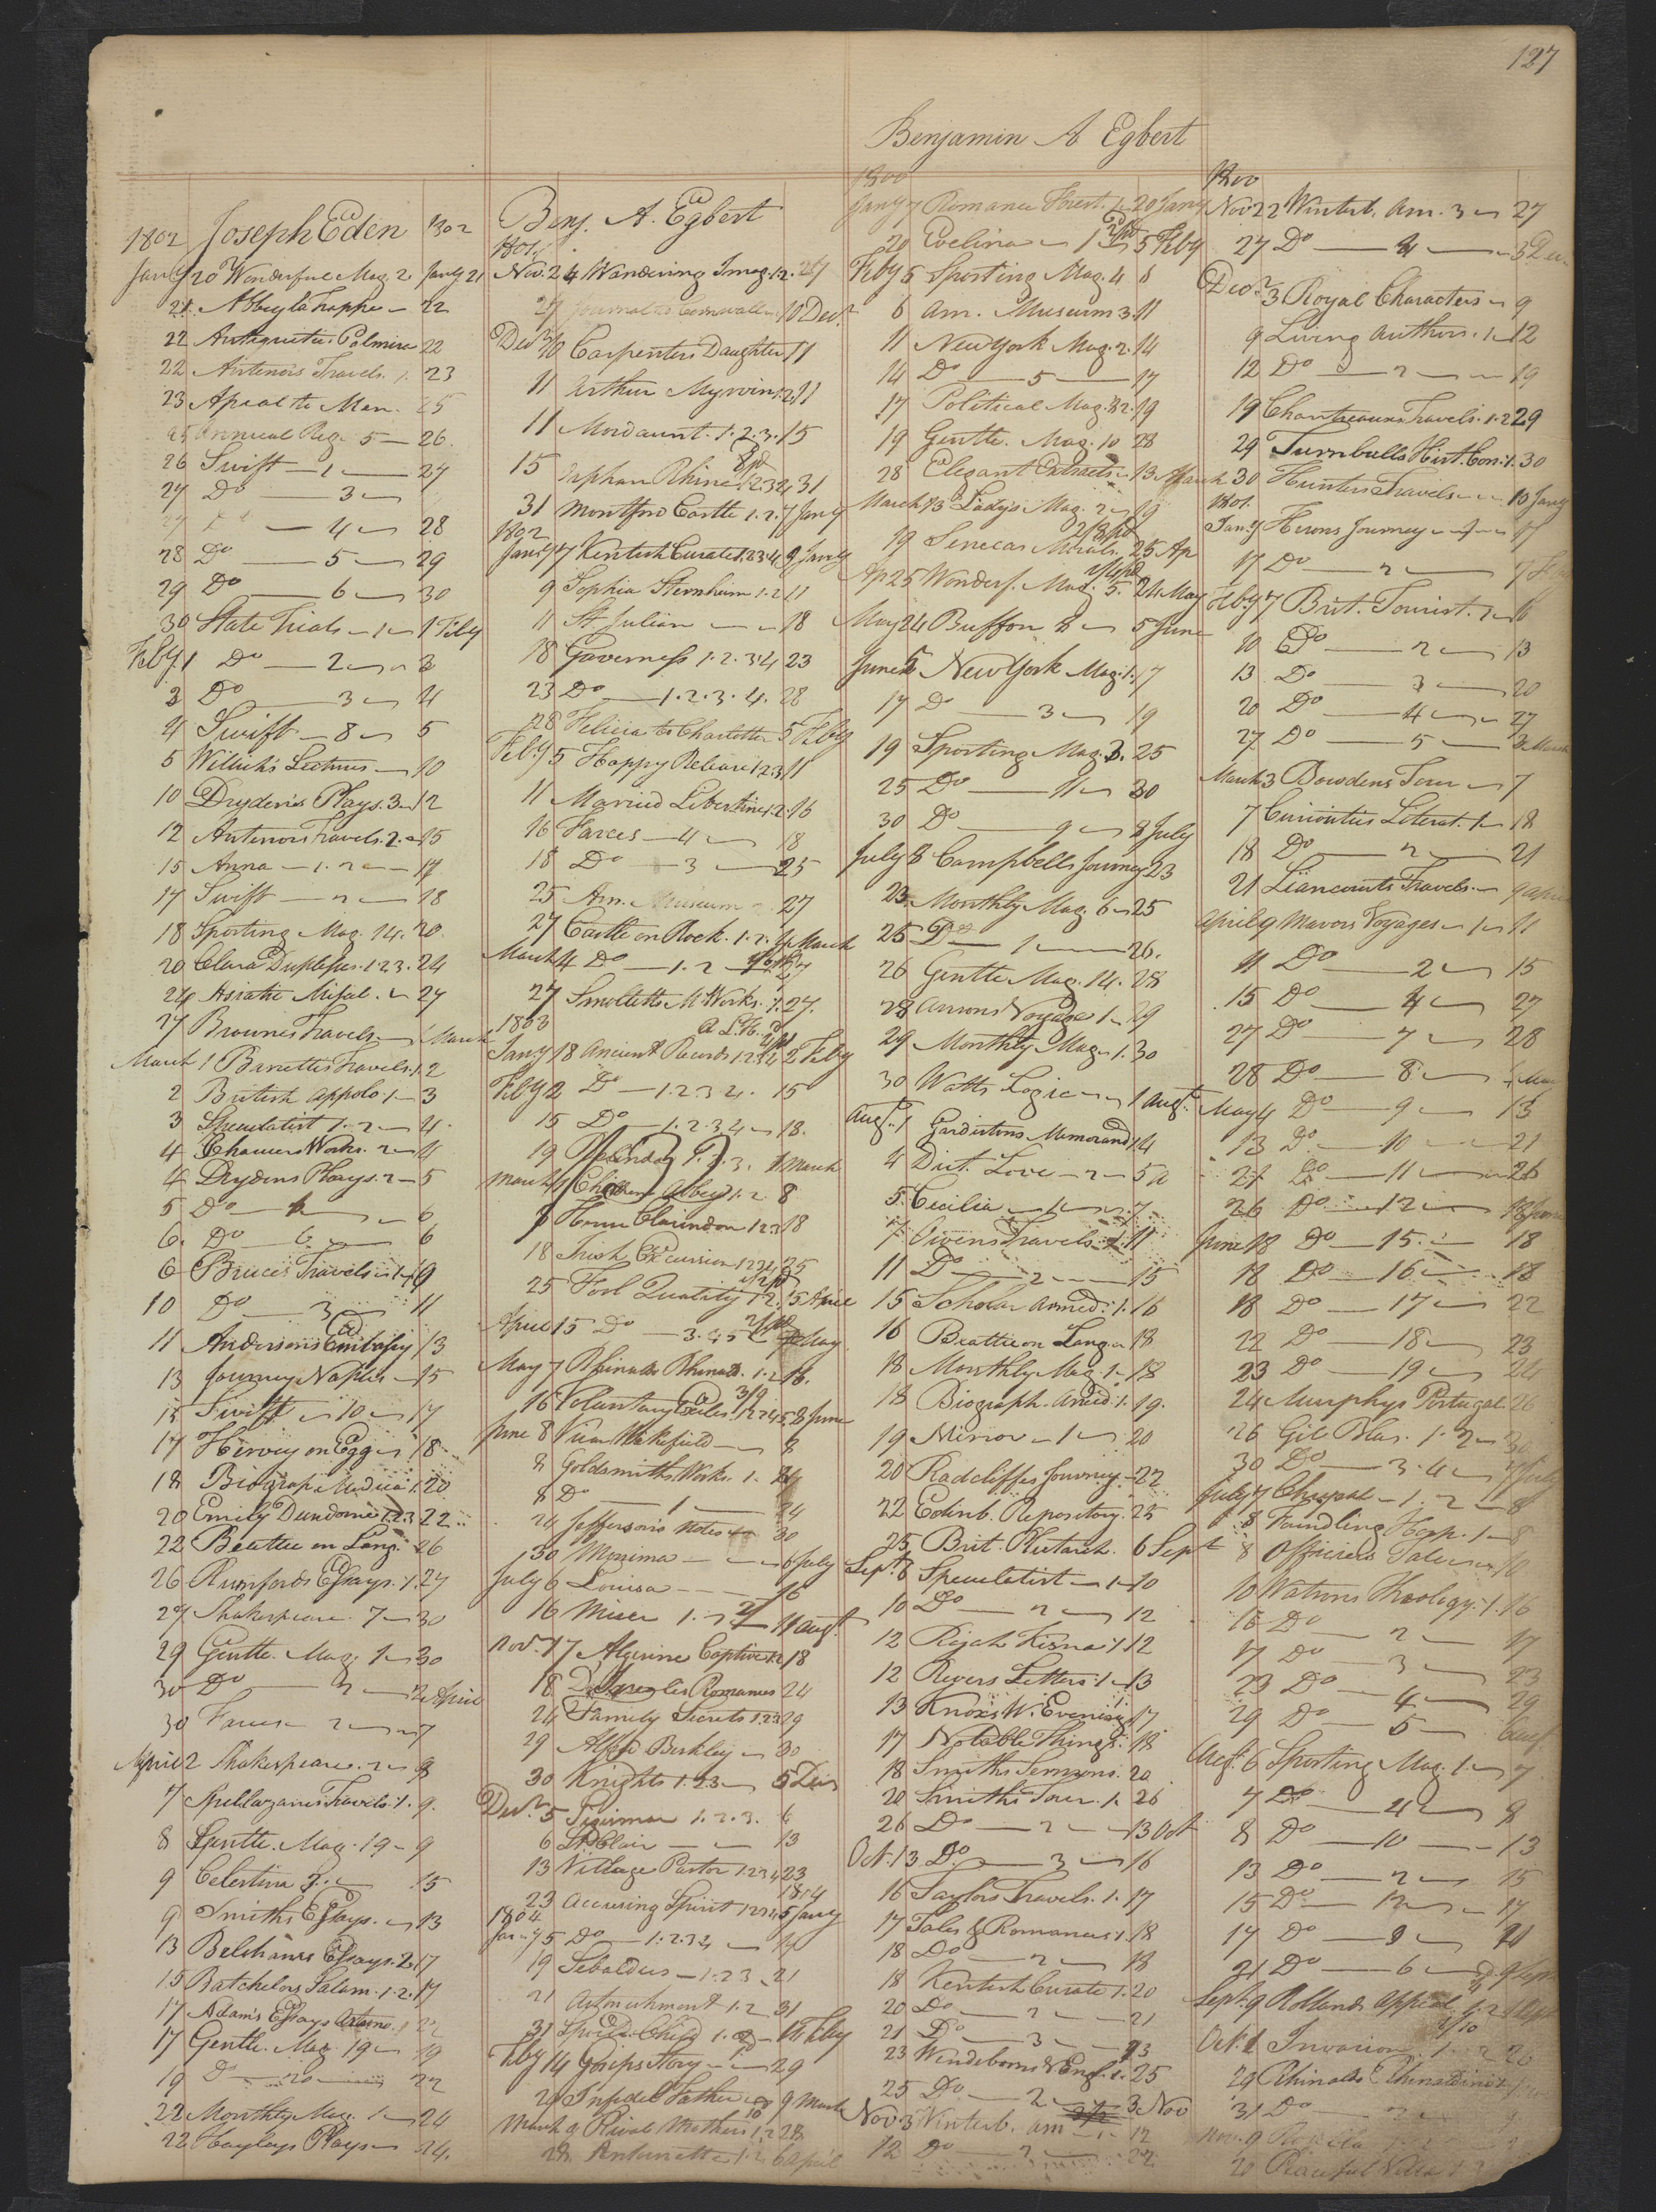 127
Benjamin A Egbert
1802 Joseph Eden 1802
Jany 20 Wonderful Mag. 2 Jany 21
21 Abbey la Trappe — 22
22 Antiquities Palmira 22
22 Antenors Travels. 1. 23
23 Apeal to Men. 25
25 Annual Reg. 5 — 26.
26 Swift — 1 — 27
27 Do — 3 —
27 Do — 4 — 28
28 Do — 5 — 29
29 Do — 6 — 30
30 State Trials — 1 — 1 Feby
Feby 1 Do — 2 — 3
3 Do — 3 — 4
4 Swift — 8 — 5
5 Willich's Lectures — 10
10 Dryden's Plays. 3 — 12
12 Antenors Travels. 2. — 15
15 Anna — 1. 2 — 17
17 Swift — 2 — 18
18 Sporting Mag. 14. 20.
20 Clara Duplessis. 1. 2 3. 24
24 Asiatic Misel. — 27
27 Brownes Travels — 1 March
March 1 Barrettis Travels. 1. 2
2 British Appolo. 1 — 3
3 Speculatist 1. 2 — 4.
4 Chaucers Works. 2 — 4
4 Drydens Plays. 2 — 5
5 Do — — 6
6. Do — 6 — 6
6 Bruces Travels — 1 — 9
10 Do — 3 — 11
11 Andersons Embassy 13
13 Journey Naples — 15
15 Swift — 10 — 17
17 Hervey on Egg — 18
18 Biograp. Medica 1. 20
20 Emily Dundorne 1. 2. 3 22
22 Beattie on Lang. 26
26 Rumfords Essays. 1. 27
27 Shakespeare. 7 — 30
29 Gentle. Mag. 1 — 30
30 Do — 2 — 2 April
30 Farces — 2 — 7
April 2 Shakespeare. 2 — 8
7 Spillazanis Travels. 1. 9.
8 Gentle. Mag. 19 — 9
9 Celestina 3. — 15
9 Smiths Essays. — 13
13 Belshams Essays. 2. 17
15 Batchelors Salam. 1. 2. 17
17 Adam's Essays 22
17 Gentle. Mag. 19 — 19
19 Do — 20 — 22
22 Monthly Mag. 1 — 24
22 Hayleys Plays — 24.
Benj. A. Egbert
1801
Nov. 24 Wandering Imag. 1. 2. 27
27 Journal to Cornwallis 10 Decr
Decr 10 Carpenters Daughter 11
11 Arthur Mervin 1. 2. 11
11 Mordaunt. 1. 2. 3. 15
15 Orphan Rhine. 1. 2 3 4 31
31 Montford Castle 1. 2. 7 Jany
1802
Jany 7 Kentish Curate 1. 2 3 4. 9 Jany
9 Sophia Sternheim 1. 2 11
11 St Julian — — 18
18 Governess 1. 2. 3 4 23
23 Do — 1. 2. 3. 4. 28
28 Felicia to Charlotte 5 Feby
Feby 5 Happy Release 1 2 3 11
11 Married Libertine 1. 2. 16
16 Farces — 4 — 18
18 Do — 3 — 25
25 Am. Museum 27
27 Castle on Rock. 1. 2. 4 March
March 4 Do — 1. 2 27
27 Smollets M. Works. 1. 27.
1803
Jany 18 Ancient Records 1 2 3 4 2 Feby
Feby 2 Do — 1. 2 3 4. 15
15 Do — 1. 2 3 4 — 18.
19 1. 2. 3. 1 March
March 1 Children Abbey 1. 2. 8
8 Horrn Clarindon 1 2 3 18
18 Irish Excursion 1 2 3 4 25
25 Fool Quality 1. 2. 5 April
April 5 Do — 3. 4 5 May
May 7 Rhinaldo Rhinald. 1. 2 16.
16 Voluntary Exiles. 1 2 3 4 5. 8 June
June 8 Vicar Wakefield — 8
8 Goldsmiths Works. 1. 24
8 Do — 1 — 24
24 Jefferson's Notes — 30
30 Monima — — 6 July
July 6 Louisa — — — 16
16 Miser 1. 2 11 Augt.
Nov. 17 Algerine Captive 1. 2 18
18 D'Israelis Romances 24
24 Family Secrets 1. 2 3 29
29 Alfred Berkley — 30
30 Knights 1. 2 3 — 5 Decr
Decr 5 1. 2. 3. 6
6 St. Clair — — 13
13 Village Pastor 1. 2 3 4 23
1804
23 Accusing Spirit 1 2 3 4 5 Jany
1804
Jany 5 Do — 1. 2 3 4 — 19
19 Sebaldus — 1. 2 3. 21
21 Astonishment 1. 2 31
31 Spoild Child 1. 2 — 14 Feby
Feby 14 Gossips Story — 29
29 Infidel Father 9 March
March 9 Rival Mothers 1. 2 28
28 Antoinette 1. 2. 6 April
1800
Jany 7 Romance Forest. 1 — 20 Jany
20 Evelina — 1 5 Feby
Feby 5 Sporting Mag. 4 6
6 Am. Museum 3. 11
11 New York Mag. 2. 14
14 Do — 5 — 17
17 Political Mag. 2. 19
19 Gentle. Mag. 10 28
28 Elegant Extracts. — 13 March
March 13 Ladys Mag. 2 — 19
19 Senecas Morals. 25 Ap
Ap 25 Wonderf. Mag. 5. 24 May
May 24 Buffon 2 — 5 June
June 5 New York Mag. 1. 17
17 Do — 3 — 19
19 Sporting Mag. 3. 25
25 Do — 11 — 30
30 Do — 9 — 8 July
July 8 Campbells Journey 23
23 Monthly Mag. 6 — 25
25 Do — 1 — 26.
26 Gentle Mag. 14. 28
28 Ansons Voyage 1 — 29
29 Monthly Mag. 1. 30
30 Watts Logic — 1 Augt.
Augt. 1 Gardistons Memorand 4
4 Dict. Love — 2 — 5
5. Cecilia — 1 — 7
7 Owens Travels — 1. 11
11 Do — 2 — 15
15 Scholar Armed. 1. 16
16 Beattie on Lang — 18
18 Monthly Mag. 1 — 18
18 Biograph. 1. 19.
19 Mirror — 1 — 20
20 Radcliffes Journey. — 22
22 Edinb. Repository. 25
25 Brit. Plutarch. 6 Sept
Sept. 6 Speculatist — 1 — 10
10 Do — 2 — 12
12 Rajah Kisna 1. 12
12 Ryers Letters 1 — 13
13 Knox's W. Evening 1. 17
17 Notable Things. 18
18 Smiths Sermons. 20
20 Smiths Tour. 1. 26
26 Do — 2 — 13 Oct
Oct. 13 Do — 3 — 16
16 Taylors Travels. 1. 17
17 Tales & Romances 1. 18
18 Do — 2 — 18
18 Kentish Curate 1. 20
20 Do — 2 — 21
21 Do — 3 — 23
23 Wendeborns Engl. 1. 25
25 Do — 2 — 3 Nov
Nov 3 Winterb. am — 1 — 12
12 Do — 2 — 22
1800
Nov 22 Winterb. Am. 3 — 27
27 Do — 4 — 3 Dec.
Decr 3 Royal Characters — 9
9 Living Authors. 1 — 12
12 Do — 2 — 19
19 Chantreaux Travels. 1. 2 29
29 Turnbulls Hist. Con. 1. 30
30 Hunters Travels — 10 Jany
1801.
Jany Herons Journey — 1 — 17
17 Do — 2 —
Feby 7 Brit. Tourist. 1 — 10
10 Do — 2 — 13
13 Do — 3 — 20
20 Do — 4 — 27
27 Do — 5 — 3 March
March 3 Bowdens Tour — 7
7 Curiosities Literat. 1 — 18
18 Do — 2 — 21
21 Liancourts Travels. — 9 April
April 9 Mavors Voyages — 1 — 11
11 Do — 2 — 15
15 Do — 4 — 27
27 Do — 7 — 28
28 Do — 8 — 4 May
May 4 Do — 9 — 13
13 Do — 10 — 21
21 Do — 11 — 26
26 Do — 12 — 18 June
June 18 Do — 15 — 18
18 Do — 16 — 18
18 Do — 17 — 22
22 Do — 18 — 23
23 Do — 19 — 24
24 Murphys Portugal 26
26 Gil Blas. 1. 2 — 30
30 Do — 3. 4 — 7 July
July 7 Chrysal — 1. 2 — 8
8 Foundling Hosp. 1 — 8
8 Officers Tales 10
10 Watsons Theology. 1. 16
16 Do — 2 — 17
17 Do — 3 — 23
23 Do — 4 — 29
29 Do — 5 — 6 Augt
Augt. 6 Sporting Mag. 1 — 7
7 Do — 4 — 8
8 Do — 10 — 13
13 Do — 2 — 15
15 Do — 12 — 17
17 Do — 9 — 21
21 Do — 6 — 9 Sept
Sept. 9 Rollands Appeal 1. 2 1 Oct
Oct. 1 Invasion 1. 2 26
29 Rhinaldo Rhinaldini
31 Do — 2
Nov. 9
20 Peaceful Villa